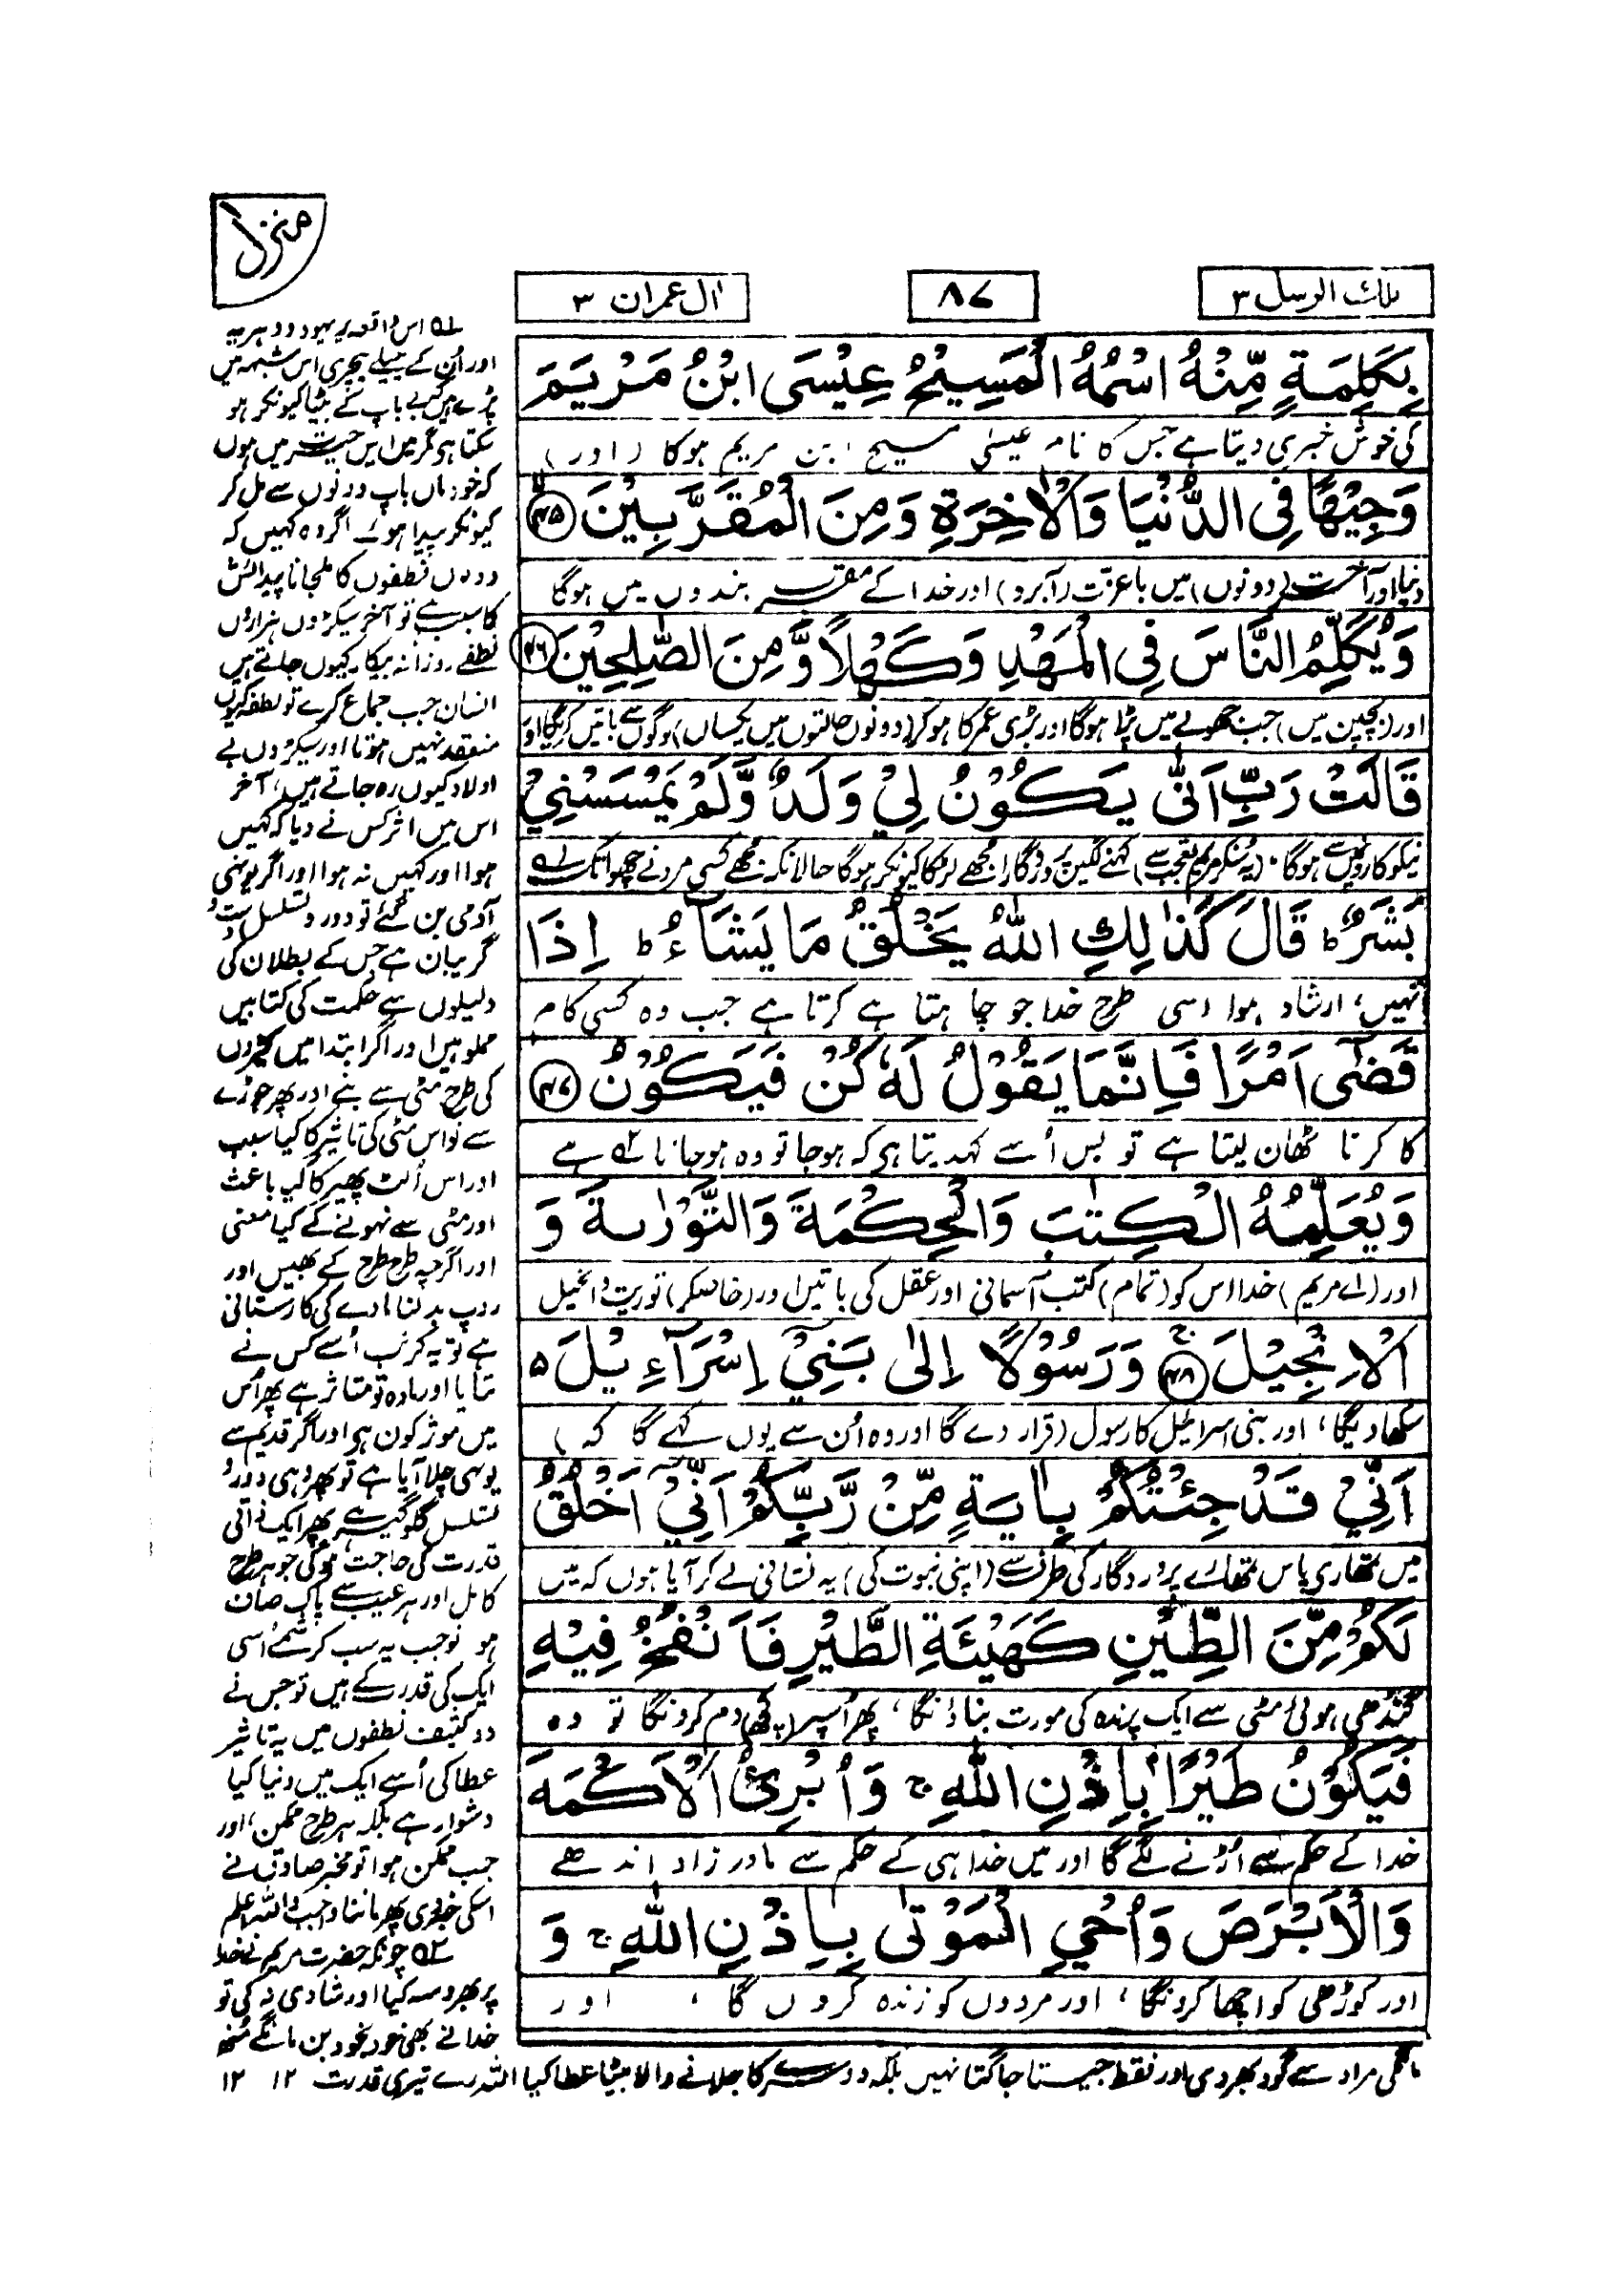 منزل ۱
تلك الرسل ۳
۸۷
اٰل عمران ۳
بِكَلِمَةٍ مِّنْهُ اسْمُهُ الْمَسِيْحُ عِيْسَى ابْنُ مَرْيَمَ
کی خوش خبری دیتا ہے جس کا نام عیسیٰ مسیح ابن مریم ہوگا (اور)
وَجِيْهًا فِي الدُّنْيَا وَالْاٰخِرَةِ وَمِنَ الْمُقَرَّبِيْنَ ﴿۴۵﴾
دنیا اور آخرت (دونوں) میں باعزت (آبرو) اور خدا کے مقرب بندوں میں ہوگا
وَيُكَلِّمُ النَّاسَ فِي الْمَهْدِ وَكَهْلًا وَّمِنَ الصّٰلِحِيْنَ ﴿۴۶﴾
اور (بچپن میں) جب جھولے میں پڑا ہوگا اور بڑی عمر کا ہو کر (دونوں حالتوں میں یکساں) لوگوں سے باتیں کریگا اور
قَالَتْ رَبِّ اَنّٰى يَكُوْنُ لِيْ وَلَدٌ وَّلَمْ يَمْسَسْنِيْ
نیکوکاروں میں سے ہوگا۔ (یہ سنکر مریم تعجب سے) کہنے لگیں پروردگارا مجھے لڑکا کیونکر ہوگا حالانکہ مجھے کسی مرد نے چھوا تک
بَشَرٌ ط قَالَ كَذٰلِكِ اللّٰهُ يَخْلُقُ مَا يَشَآءُ ط اِذَا
نہیں، ارشاد ہوا اسی طرح خدا جو چاہتا ہے کرتا ہے جب وہ کسی کام
قَضٰٓى اَمْرًا فَاِنَّمَا يَقُوْلُ لَهٗ كُنْ فَيَكُوْنُ ﴿۴۷﴾
کا کرنا ٹھان لیتا ہے تو بس اُسے کہدیتا ہی کہ ہوجا تو وہ ہو جاتا ۵۲ ہے
وَيُعَلِّمُهُ الْكِتٰبَ وَالْحِكْمَةَ وَالتَّوْرٰىةَ وَ
اور (اے مریم) خدا اس کو (تمام) کتب آسمانی اور عقل کی باتیں اور (خاصکر) توریت و انجیل
الْاِنْجِيْلَ ﴿۴۸﴾ ج وَرَسُوْلًا اِلٰى بَنِيْٓ اِسْرَآءِيْلَ ۵
سکھا دیگا، اور بنی اسرائیل کا رسول (قرار دے گا اور وہ اُن سے یوں کہے گا کہ)
اَنِّيْ قَدْ جِئْتُكُمْ بِاٰيَةٍ مِّنْ رَّبِّكُمْ اَنِّيْٓ اَخْلُقُ
میں تمھاری پاس تمھارے پروردگار کی طرف سے (اپنی نبوت کی) یہ نشانی لے کر آیا ہوں کہ میں
لَكُمْ مِّنَ الطِّيْنِ كَهَيْئَةِ الطَّيْرِ فَاَنْفُخُ فِيْهِ
گندھی ہوئی مٹی سے ایک پرندہ کی مورت بناؤنگا، پھر اُسپر (کچھ) دم کرونگا تو وہ
فَيَكُوْنُ طَيْرًا بِاِذْنِ اللّٰهِ ج وَاُبْرِئُ الْاَكْمَهَ
خدا کے حکم سے اُڑنے لگے گا اور میں خدا ہی کے حکم سے مادر زاد اندھے
وَالْاَبْرَصَ وَاُحْيِ الْمَوْتٰى بِاِذْنِ اللّٰهِ ج وَ
اور کوڑھی کو اچھا کرونگا، اور مردوں کو زندہ کروں گا، اور
۵۱ اس واقعہ پر یہود و دہریہ
اور اُن کے چیلے نیچری اس شبہہ میں
پڑے ہیں کہ بے باپ کے بیٹا کیونکر ہو
سکتا ہی مگر میں اس حیرت میں ہوں
کہ خود ماں باپ دونوں سے مل کر
کیونکر پیدا ہوئے اگر وہ کہیں کہ
دونوں نطفوں کا ملجانا پیدائش
کا سبب ہے تو آخر سیکڑوں ہزاروں
نطفے روزانہ بیکار کیوں جاتے ہیں
انسان جب جماع کرے تو نطفہ کیوں
منعقد نہیں ہوتا اور سیکڑوں بے
اولاد کیوں رہ جاتے ہیں، آخر
اس میں اثر کس نے دیا کہ کہیں
ہوا اور کہیں نہ ہوا اور اگر یونہی
آدمی بن گئے تو دور و تسلسل دست و
گریبان ہے جس کے بطلان کی
دلیلوں سے حکمت کی کتابیں
مملو ہیں اور اگر ابتدا میں کیڑوں
کی طرح مٹی سے بنے اور پھر جوڑے
سے تو اس مٹی کی تاثیر کا کیا سبب
اور اس اُلٹ پھیر کا کیا باعث
اور مٹی سے نہونے کے کیا معنی
اور اگرچہ طرح طرح کے بھیس اور
روپ بدلنا مادے کی کارستانی
ہے تو یہ کرتب اُسے کس نے
بتایا اور مادہ تو متاثر ہے پھر اُس
میں موثر کون ہی اور اگر قدیم سے
یوںہی چلا آیا ہے تو پھر وہی دور و
تسلسل گلوگیر ہے پھر ایک ذاتی
قدرت کی حاجت ہوگی جو ہر طرح
کامل اور ہر عیب سے پاک صاف
ہو تو جب یہ سب کرشمے اُسی
ایک کی قدرت کے ہیں تو جس نے
دو کثیف نطفوں میں یہ تاثیر
عطا کی اُسے ایک میں دینا کیا
دشوار ہے بلکہ ہر طرح ممکن، اور
جب ممکن ہوا تو مخبر صادق نے
اسکی خبر دی پھر ماننا واجب واللہ اعلم
۵۲ چونکہ حضرت مریم نے خدا
پر بھروسہ کیا اور شادی نہ کی تو
خدا نے بھی خود بخود بن مانگے مُنھ
مانگی مراد سے گود بھر دی اور فقط جیتا جاگتا نہیں بلکہ دوسرے کا جلانے والا بیٹا عطا کیا اللہ رے تیری قدرت ۱۲ ۱۲